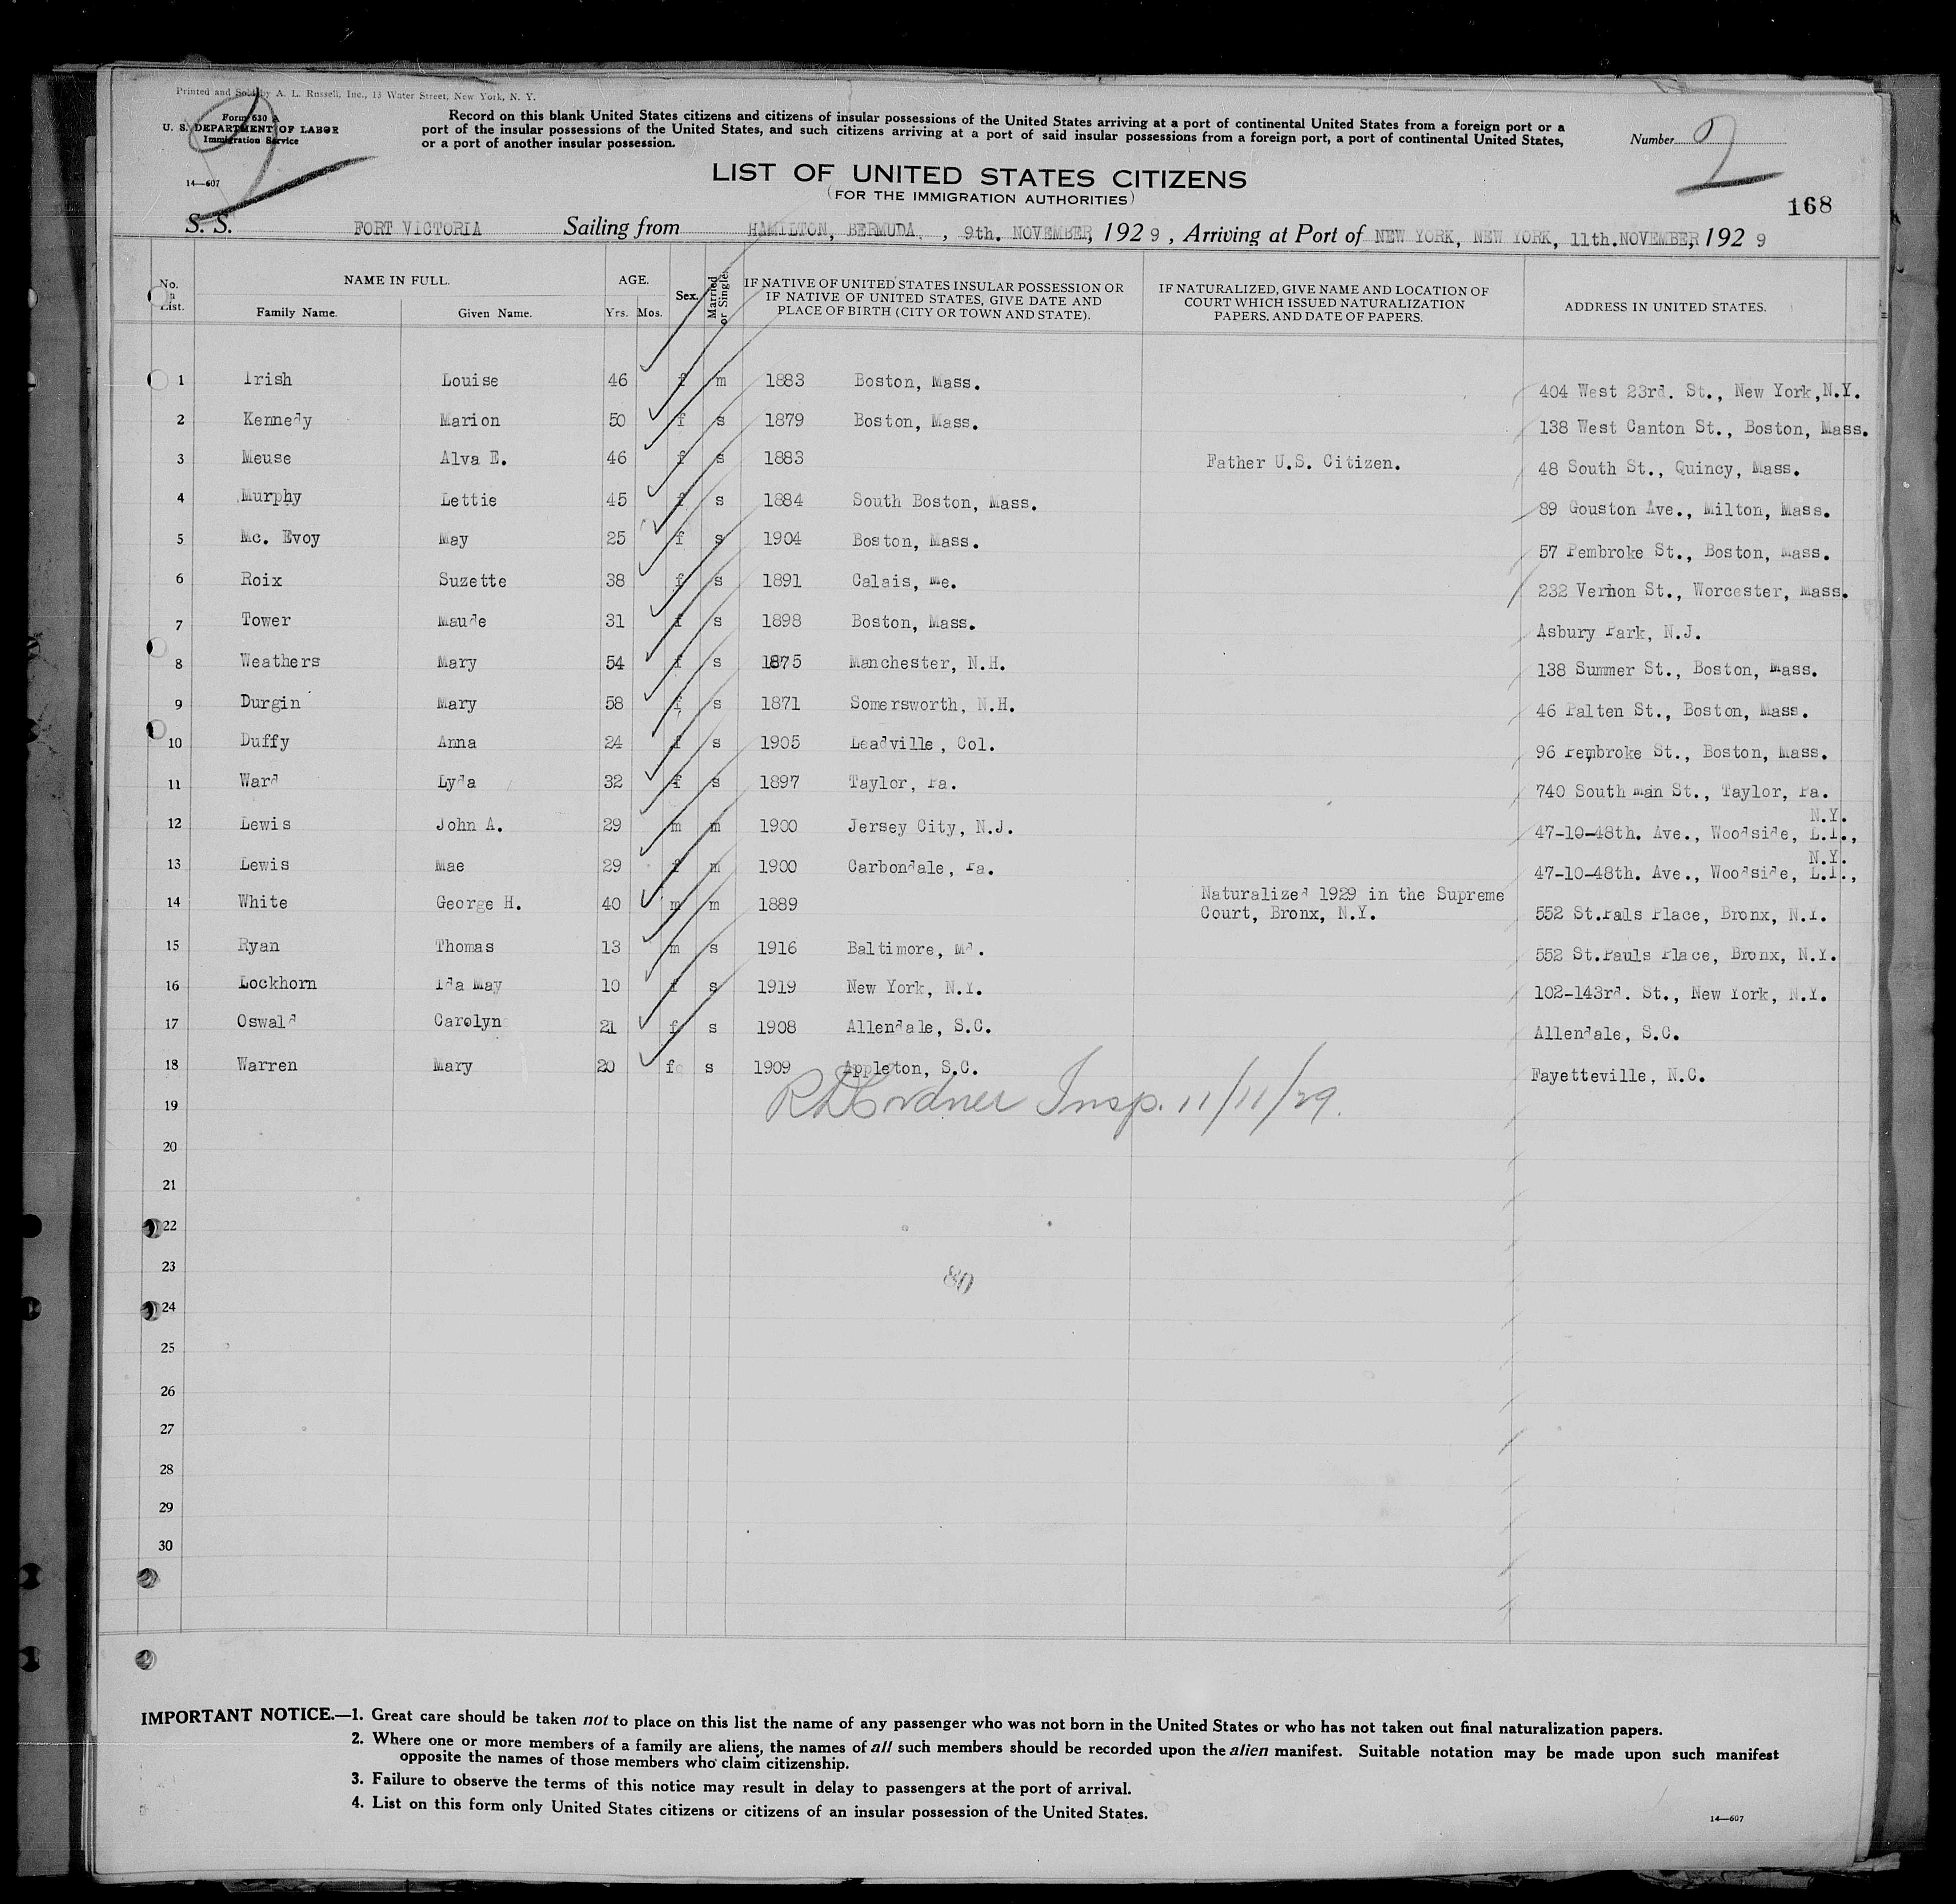 Printed and Sold by A. L. Russell, Inc., 13 Water Street, New York, N. Y.
Form 630 A
U. S. DEPARTMENT OF LABOR
Immigration Service
14—607
2
Record on this blank United States citizens and citizens of insular possessions of the United States arriving at a port of continental United States from a foreign port or a
port of the insular possessions of the United States, and such citizens arriving at a port of said insular possessions from a foreign port, a port of continental United States,
or a port of another insular possession.
Number 2
LIST OF UNITED STATES CITIZENS
(FOR THE IMMIGRATION AUTHORITIES)
168
S. S. FORT VICTORIA Sailing from HAMILTON, BERMUDA, , 9th. NOVEMBER, 192 9 , Arriving at Port of NEW YORK, NEW YORK, 11th.NOVEMBER, 192 9
No. in List. NAME IN FULL. Family Name. Given Name. AGE. Yrs. Mos. Sex. Married or Single. IF NATIVE OF UNITED STATES INSULAR POSSESSION OR IF NATIVE OF UNITED STATES, GIVE DATE AND PLACE OF BIRTH (CITY OR TOWN AND STATE). IF NATURALIZED, GIVE NAME AND LOCATION OF COURT WHICH ISSUED NATURALIZATION PAPERS, AND DATE OF PAPERS. ADDRESS IN UNITED STATES.
1 Irish Louise 46 f m 1883 Boston, Mass. 404 West 23rd. St., New York,N.Y.
2 Kennedy Marion 50 f s 1879 Boston, Mass. 138 West Canton St., Boston, Mass.
3 Meuse Alva E. 46 f s 1883 Father U.S. Citizen. 48 South St., Quincy, Mass.
4 Murphy Lettie 45 f s 1884 South Boston, Mass. 89 Gouston Ave., Milton, Mass.
5 Mc. Evoy May 25 f s 1904 Boston, Mass. 57 Pembroke St., Boston, Mass.
6 Roix Suzette 38 f s 1891 Calais, Me. 232 Vernon St., Worcester, Mass.
7 Tower Maude 31 f s 1898 Boston, Mass. Asbury Park, N.J.
8 Weathers Mary 54 f s 1875 Manchester, N.H. 138 Summer St., Boston, Mass.
9 Durgin Mary 58 f s 1871 Somersworth, N.H. 46 Falten St., Boston, Mass.
10 Duffy Anna 24 f s 1905 Leadville, Col. 96 Pembroke St., Boston, Mass.
11 Ward Lyda 32 f s 1897 Taylor, Pa. 740 South Man St., Taylor, Pa.
12 Lewis John A. 29 m m 1900 Jersey City, N.J. 47-10-48th. Ave., Woodside, L.I., N.Y.
13 Lewis Mae 29 f m 1900 Carbondale, Pa. 47-10-48th. Ave., Woodside, L.I., N.Y.
14 White George H. 40 m m 1889 Naturalized 1929 in the Supreme Court, Bronx, N.Y. 552 St.Pals Place, Bronx, N.Y.
15 Ryan Thomas 13 m s 1916 Baltimore, Md. 552 St.Pauls Place, Bronx, N.Y.
16 Lockhorn Ida May 10 f s 1919 New York, N.Y. 102-143rd. St., New York, N.Y.
17 Oswald Carolyn 21 f s 1908 Allendale, S.C. Allendale, S.C.
18 Warren Mary 20 f s 1909 Appleton, S.C. Fayetteville, N.C.
Insp. 11/11/29.
19
20
21
22
23
24
25
26
27
28
29
30
IMPORTANT NOTICE.—1. Great care should be taken not to place on this list the name of any passenger who was not born in the United States or who has not taken out final naturalization papers.
2. Where one or more members of a family are aliens, the names of all such members should be recorded upon the alien manifest. Suitable notation may be made upon such manifest
opposite the names of those members who claim citizenship.
3. Failure to observe the terms of this notice may result in delay to passengers at the port of arrival.
4. List on this form only United States citizens or citizens of an insular possession of the United States.
14—607